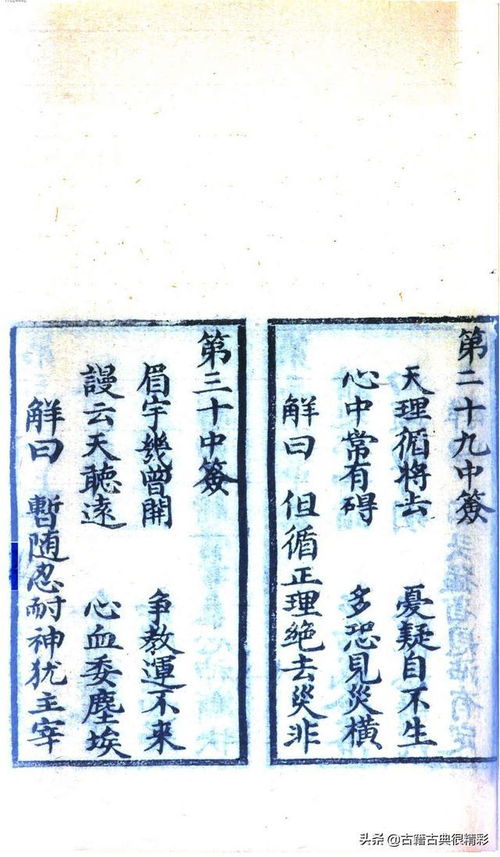 第二十九中簽
天理循将去 憂疑自不生
心中常有碍 多恐見災橫
解曰 但循正理絶去災非
第三十中簽
眉宇幾曽開 争教運不来
謾云天聽遠 心血委塵埃
解曰 暫随忍耐神犹主宰
头条 @古籍古典很精彩